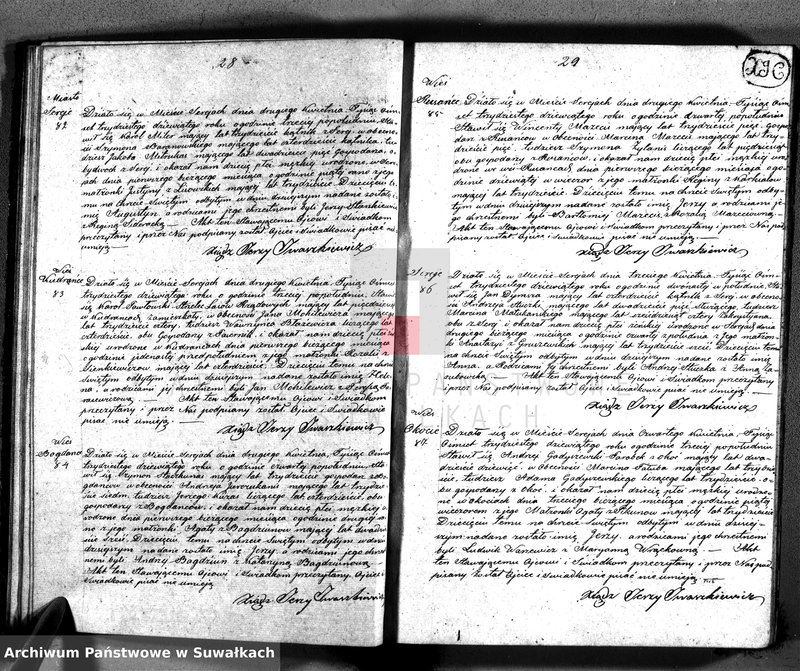 28
Miasto
Sereje
82
Działo się w Mieście Serejach dnia drugiego Kwietnia, Tysiąc Ośm-
set trzydziestego dziewiątego roku o godzinie trzeciej popołudniu, Sta-
wił się Karol Miler mający lat trzydzieście kątnik z Serej, w obecno-
ści Szymona mającego lat czterdzieście kątnika, tu-
dzież Jakóba mającego lat dwadzieścia pięć Gospodarza, o-
bydwóch z Serej, i okazał nam dziecię płci męzkiej urodzone, w Sere-
jach dnia pierwszego bieżącego miesiąca o godzinie piątej rano z jego
małżonki Justyny z mającej lat trzydzieście. Dziecięciu te-
mu na chrzcie Swiętym odbytym w dniu dzisiejszym nadane zostało
imię Augustyn, a rodzicami jego chrzestnemi byli Jerzy Stankiewicz
z Reginą Akt ten Stawającemu Ojcowi i Swiadkom
przeczytany i przez Nas podpisany został, Ojciec i Swiadkowie pisać nie
umieją —
Xiądz Jerzy Iwaszkiewicz
Wieś
Kudrańce
83
Działo się w Mieście Serejach dnia drugiego Kwietnia, Tysiąc Ośmset
trzydziestego dziewiątego roku o godzinie trzeciej popołudniu, Stawił
się Karol Pawłowski Strzelec
w Kudrańcach zamieszkały, w obecności Jana Mohilewicza mającego
lat trzydzieście cztery, tudzież Wawrzyńca Błażewicza bieżącego lat
czterdzieście, obu Gospodarzy i okazał nam dziecię płci żeń-
skiej urodzone w Kudrańcach dnia pierwszego bieżącego miesiąca
o godzinie jedenastej przedpołudniem z jego małżonki Rozalii z
Sienkiewiczów mającej lat czterdzieście. Dziecięciu temu na chrzcie
Swiętym odbytym w dniu dzisiejszym, nadane zostało imię
a rodzicami jej chrzestnemi byli Jan Mohilewicz z
Akt ten Stawającemu Ojcowi i Swiadkom
przeczytany i przez Nas podpisany został. Ojciec i Swiadkowie
pisać nie umieją. —
Xiądz Jerzy Iwaszkiewicz
Wieś
Bogdańce
84
Działo się w Mieście Serejach dnia drugiego Kwietnia, Tysiąc Ośmset
trzydziestego dziewiątego roku, o godzinie czwartej popołudniu, Sta-
wił się Szymon mający lat trzydzieście gospodarz z Bo-
gdańców w obecności Andrzeja mającego lat trzydzie-
ście siedm, tudzież Jerzego bieżącego lat czterdzieście, obu
gospodarzy z Bogdańców, i okazał nam dziecię płci męzkiej u-
rodzone dnia pierwszego bieżącego miesiąca o godzinie drugiej
z jego małżonki Agaty z Bagdziunów mającej lat dwadzie-
ścia sześć. Dziecięciu temu na chrzcie Swiętym odbytym w dniu
dzisiejszym nadane zostało imię Jerzy, a rodzicami jego chrzest-
nemi byli Andrzej Bagdziun z Katarzyną Bagdziunową
Akt ten Stawającemu Ojcowi i Swiadkom przeczytany, Ojciec i
Swiadkowie pisać nie umieją
Xiądz Jerzy Iwaszkiewicz
29
Wieś
85
Działo się w Mieście Serejach dnia drugiego Kwietnia, Tysiąc Ośm-
set trzydziestego dziewiątego roku o godzinie czwartej popołudniu
Stawił się Wincenty Mazeci mający lat trzydzieście pięć, Gospo-
darz w obecności Marcina Mazeci mającego lat trzy-
dzieście pięć, tudzież Szymona bieżącego lat pięćdziesiąt
obu gospodarzy i okazał nam dziecię płci męzkiej uro-
dzone w wsi dnia pierwszego bieżącego miesiąca o go-
dzinie dziewiątej w wieczor z jego małżonki Reginy z
mającej lat trzydzieście. Dziecięciu temu na chrzcie Swiętym odby-
tym w dniu dzisiejszym nadane zostało imię Jerzy a rodzicami je-
go chrzestnemi byli Bartłomiej Mazeci z Rozalią
Akt ten Stawającemu Ojcowi i Swiadkom przeczytany i przez Nas pod-
pisany został, Ojciec i Swiadkowie pisać nie umieją —
Xiądz Jerzy Iwaszkiewicz
Sereje
86
Działo się w Mieście Serejach dnia trzeciego Kwietnia, Tysiąc Ośm-
set trzydziestego dziewiątego roku, o godzinie dwunastej w południe, Sta-
wił się Jan Dymsza mający lat czterdzieście kątnik z Serej w obecno-
ści Andrzeja mającego lat dwadzieścia pięć tudzież
Marcina mającego lat sześćdziesiąt cztery
obu z Serej i okazał nam dziecię płci żeńskiej urodzone w Serejach dnia
drugiego bieżącego miesiąca o godzinie czwartej z południa z jego małżon-
ki Anastazyi z mającej lat trzydzieście sześć. Dziecięciu temu
na chrzcie Swiętym odbytym w dniu dzisiejszym nadane zostało imię
Anna, a Rodzicami Jej chrzestnemi byli Andrzej z Anną
Akt ten Stawającemu Ojcowi i Swiadkom przeczytany
i przez Nas podpisany został, Ojciec i Swiadkowie pisać nie umieją
Xiądz Jerzy Iwaszkiewicz
Wieś
87
Działo się w Mieście Serejach dnia Czwartego Kwietnia, Tysiąc
Ośmset trzydziestego dziewiątego roku o godzinie trzeciej popołudniu
Stawił się Andrzej Gadyszewski Parobek z mający lat dwa-
dzieścia dziewięć, w obecności Marcina mającego lat trzydzie-
ście, tudzież Adama Gadyszewskiego bieżącego lat trzydzieście, o-
bu gospodarzy z i okazał nam dziecię płci męzkiej urodzo-
ne w dnia trzeciego bieżącego miesiąca o godzinie piątej
wieczorem z jego Małżonki Agaty z mającej lat trzydzieście
Dziecięciu temu na chrzcie Swiętym odbytym w dniu dzisiej-
szym nadane zostało imię, Jerzy, a rodzicami jego chrzestnemi
byli Ludwik z Maryanną — Akt
ten Stawającemu Ojcowi i Swiadkom przeczytany i przez Nas pod-
pisany został Ojciec i Swiadkowie pisać nie umieją —
Xiądz Jerzy Iwaszkiewicz
Archiwum Państwowe w Suwałkach